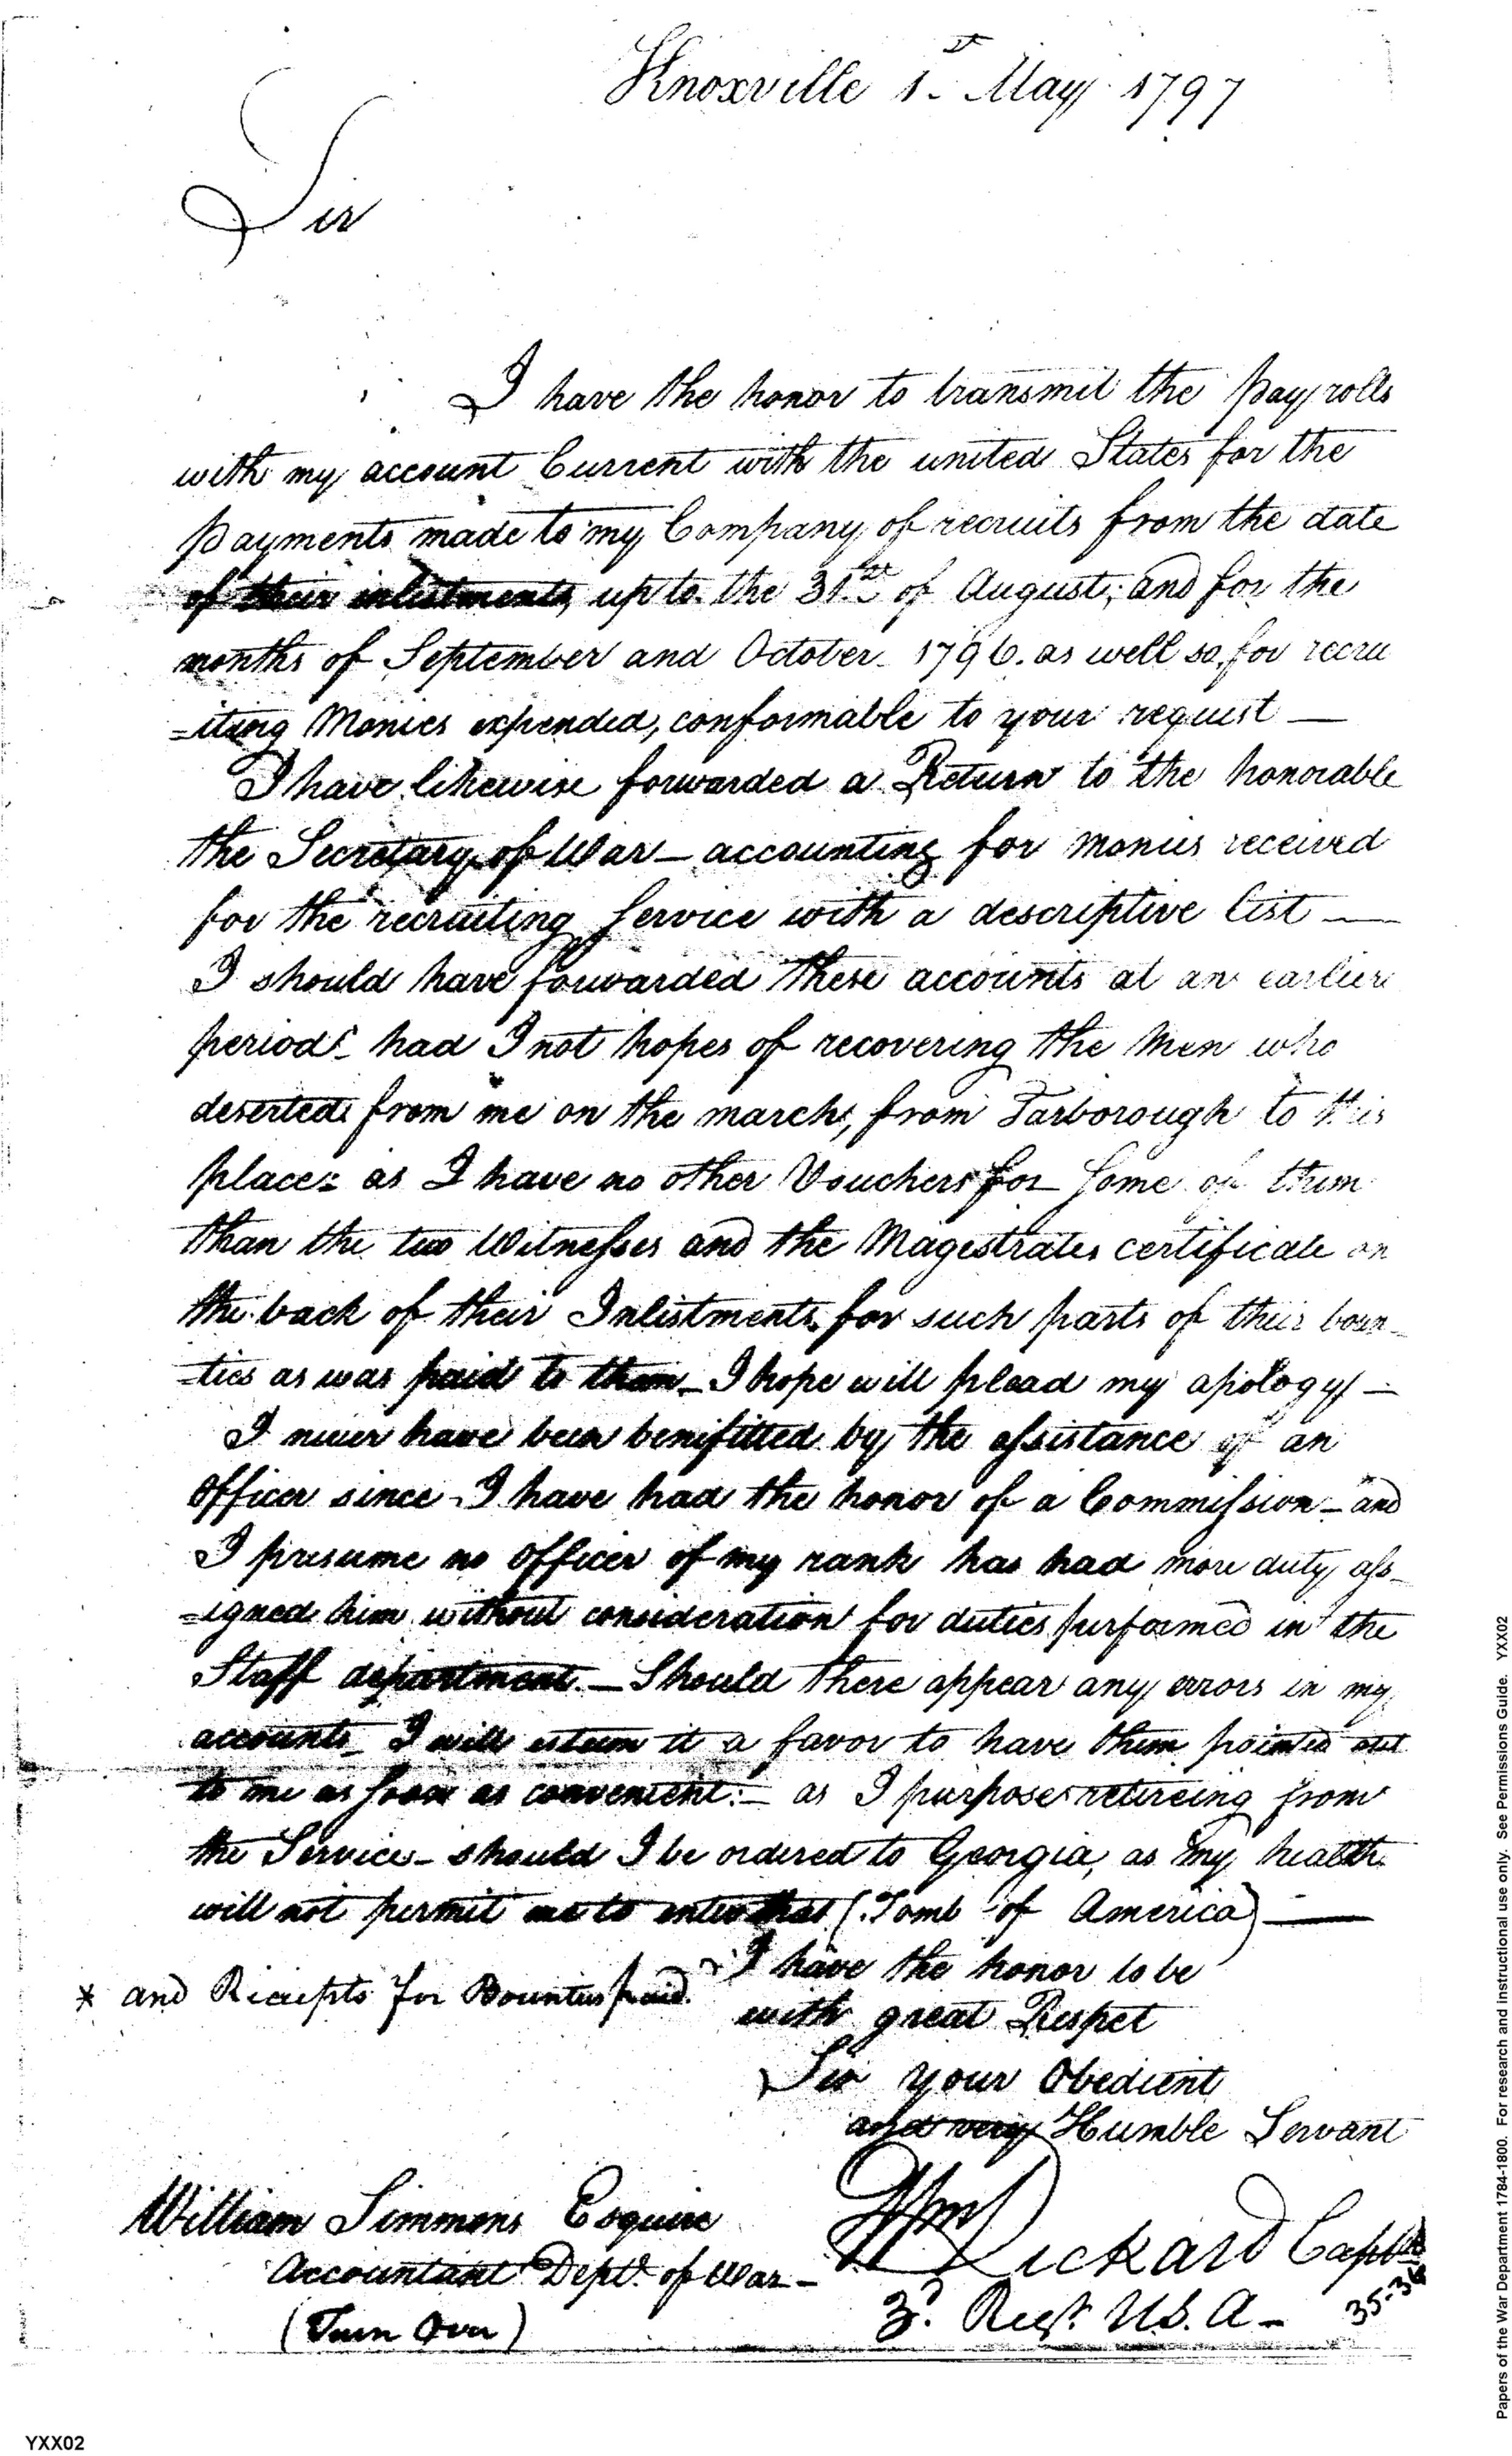 Knoxville 1st May 1797
Sir
I have the honor to transmit the pay rolls
with my account Current with the united States for the
payments made to my Company of recruits from the date
of their inlistments, up to the 31st of August; and for the
months of September and October 1796. as well so, for recru
=iting Monies expended, conformable to your request —
I have likewise forwarded a Return to the honorable
the Secretary of War — accounting for monies received
for the recruiting Service with a descriptive list —
I should have forwarded these accounts at an earlier
period — had I not hopes of recovering the Men who
deserted from me on the march, from Tarborough to this
place = as I have no other Vouchers for Some of them
than the two Witnesses and the Magestrates certificate on
the back of their Inlistments, for such parts of their boun-
=ties as was paid to them — I hope will plead my apology —
I never have been benifitted by the assistance of an
Officer since I have had the honor of a Commission — and
I presume no Officer of my rank has had more duty ass-
=igned him without consideration for duties performed in the
Staff department. — Should there appear any errors in my
accounts — I will esteem it a favor to have them pointed out
to me as soon as convenient: — as I purpose retireing from
the Service — should I be ordered to Georgia, as my health
will not permit me to enter that (Tomb of America) —
I have the honor to be
* and Reciepts for Bounties paid.
with great Respet
Sir your Obedient
and very Humble Servant
Wm Rickard Capt
3d Regt. U.S. A —
35-36
William Simmons Esquire
Accountant Dept. of War —
(Turn Over)
YXX02
Papers of the War Department 1784-1800. For research and instructional use only. See Permissions Guide. YXX02